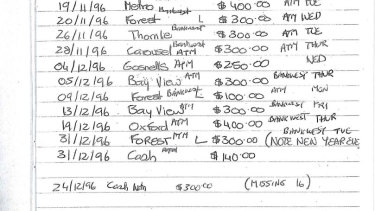 19/11/96 Metro Bankwest $400.00 ATM TUE
20/11/96 Forest L $300.00 ATM WED
26/11/96 Thornlie Bankwest $300.00 ATM TUE
28/11/96 Carousel Bankwest $300.00 ATM THUR
04/12/96 Gosnells ATM $250.00 WED
05/12/96 Bay View ATM $300.00 BANKWEST THUR
09/12/96 Forest Bankwest L $100.00 ATM MON
13/12/96 Bay View ATM $300.00 BANKWEST FRI
19/12/96 Oxford ATM $400.00 BANKWEST THUR
31/12/96 FOREST ATM L $300.00 BANKWEST TUE (NOTE NEW YEAR EVE
31/12/96 Cash $140.00
24/12/96 Cash $300.00 (MISSING 16)